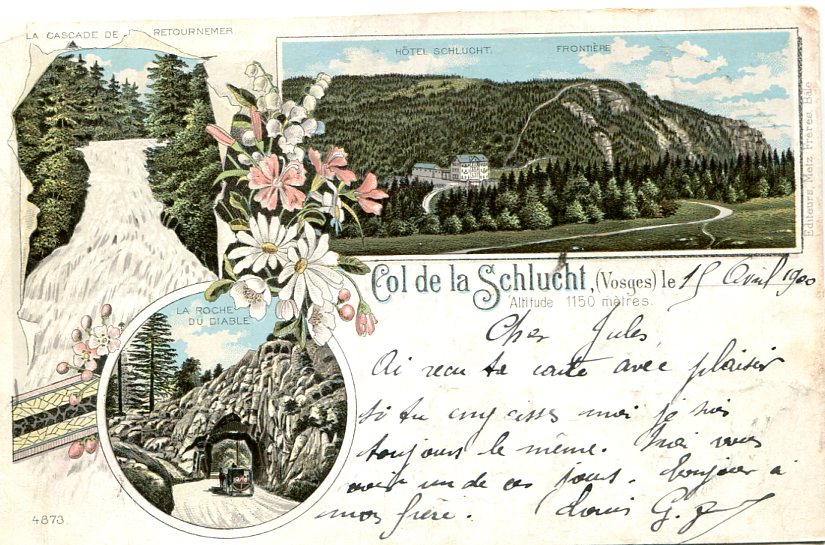 LA CASCADE DE RETOURNEMER
HÔTEL SCHLUCHT. FRONTIÈRE
Editeurs Metz Frères, Bâle
Col de la Schlucht, (Vosges) le 15 Avril 1900
Altitude 1150 mètres.
LA ROCHE
DU DIABLE
Cher Jules
Ai recu ta carte avec plaisir
si tu moi je suis
toujours le même. vous
voir un de ces jours. bonjour à
mon frère. Louis G.
4873.